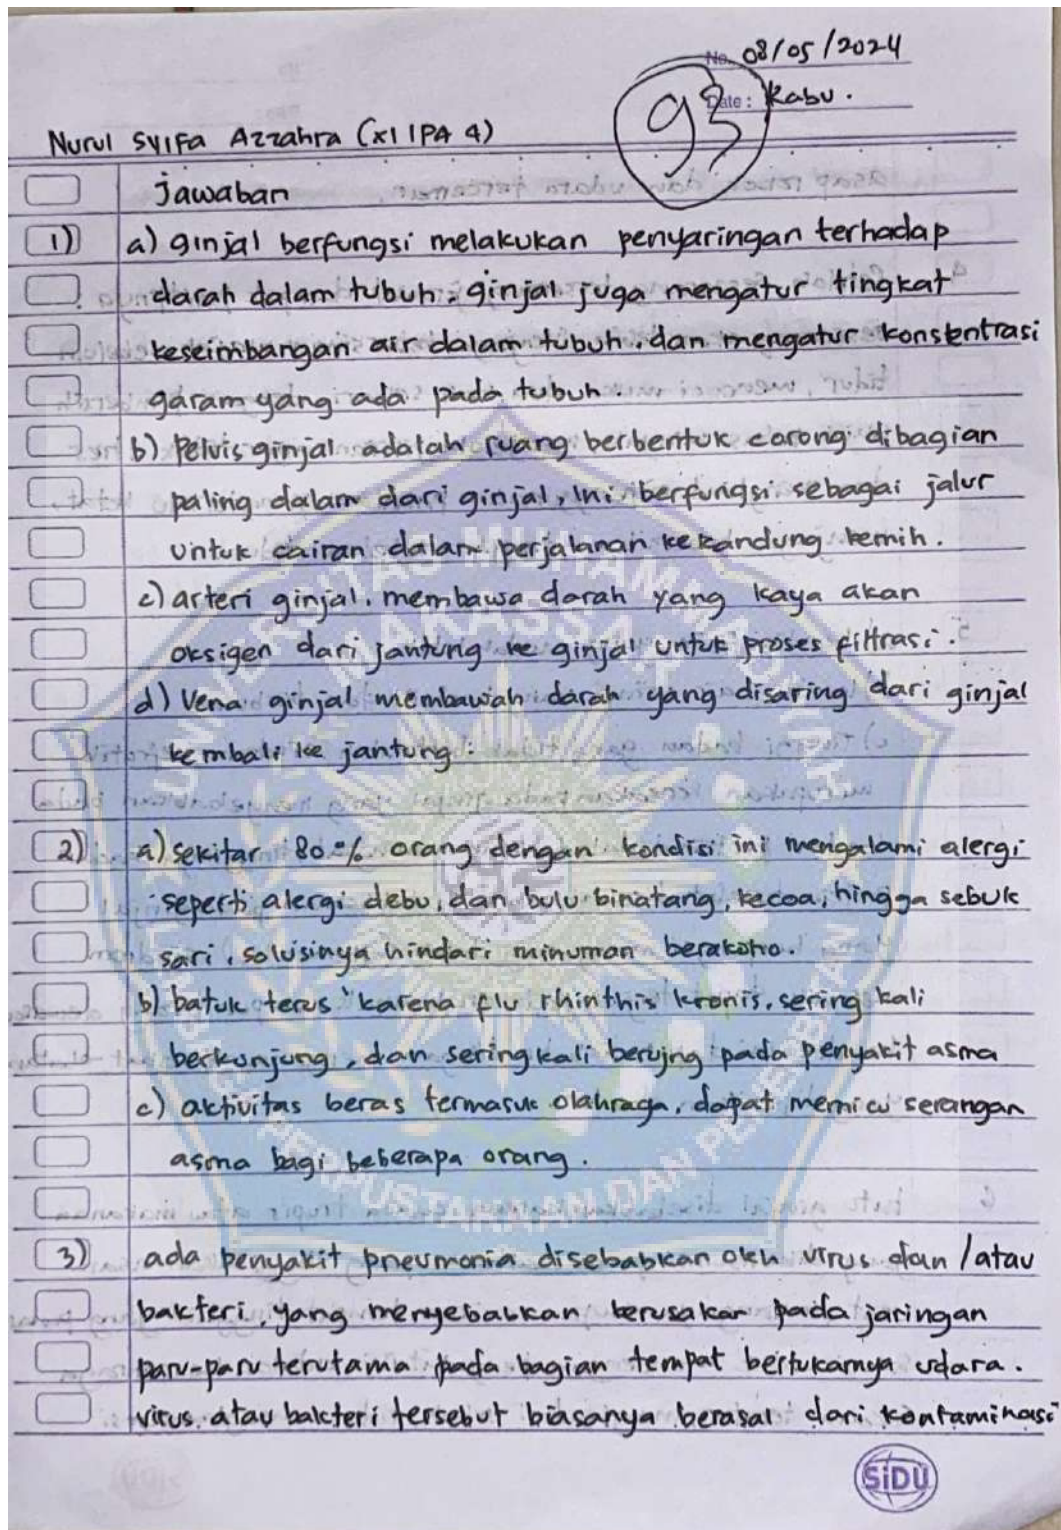 No. 08/05/2024
Date: Rabu.
93
Nurul Syifa Azzahra (XI IPA 4)
jawaban
1) a) ginjal berfungsi melakukan penyaringan terhadap
darah dalam tubuh, ginjal juga mengatur tingkat
keseimbangan air dalam tubuh. dan mengatur konsentrasi
garam yang ada pada tubuh.
b) Pelvis ginjal adalah ruang berbentuk corong dibagian
paling dalam dari ginjal, ini berfungsi sebagai jalur
untuk cairan dalam perjalanan kekandung kemih.
c) arteri ginjal. membawa darah yang kaya akan
oksigen dari jantung ke ginjal untuk proses filtrasi.
d) Vena ginjal membawah darah yang disaring dari ginjal
kembali ke jantung.
2) a) sekitar 80% orang dengan kondisi ini mengalami alergi
seperti alergi debu, dan bulu binatang, kecoa, hingga sebuk
sari, solusinya hindari minuman berakoho.
b) batuk terus" karena flu rhinthis kronis. sering kali
berkunjung, dan sering kali berujng pada penyakit asma
c) aktivitas beras termasuk olahraga, dapat memicu serangan
asma bagi beberapa orang.
3) ada penyakit pneumonia disebabkan oleh virus dan/atau
bakteri, yang menyebabkan kerusakan pada jaringan
paru-paru terutama pada bagian tempat bertukarnya udara.
virus atau bakteri tersebut biasanya berasal dari kontaminasi
SiDU
UNIVERSITAS MUHAMMADIYAH
MAKASSAR
PERPUSTAKAAN DAN PENERBITAN